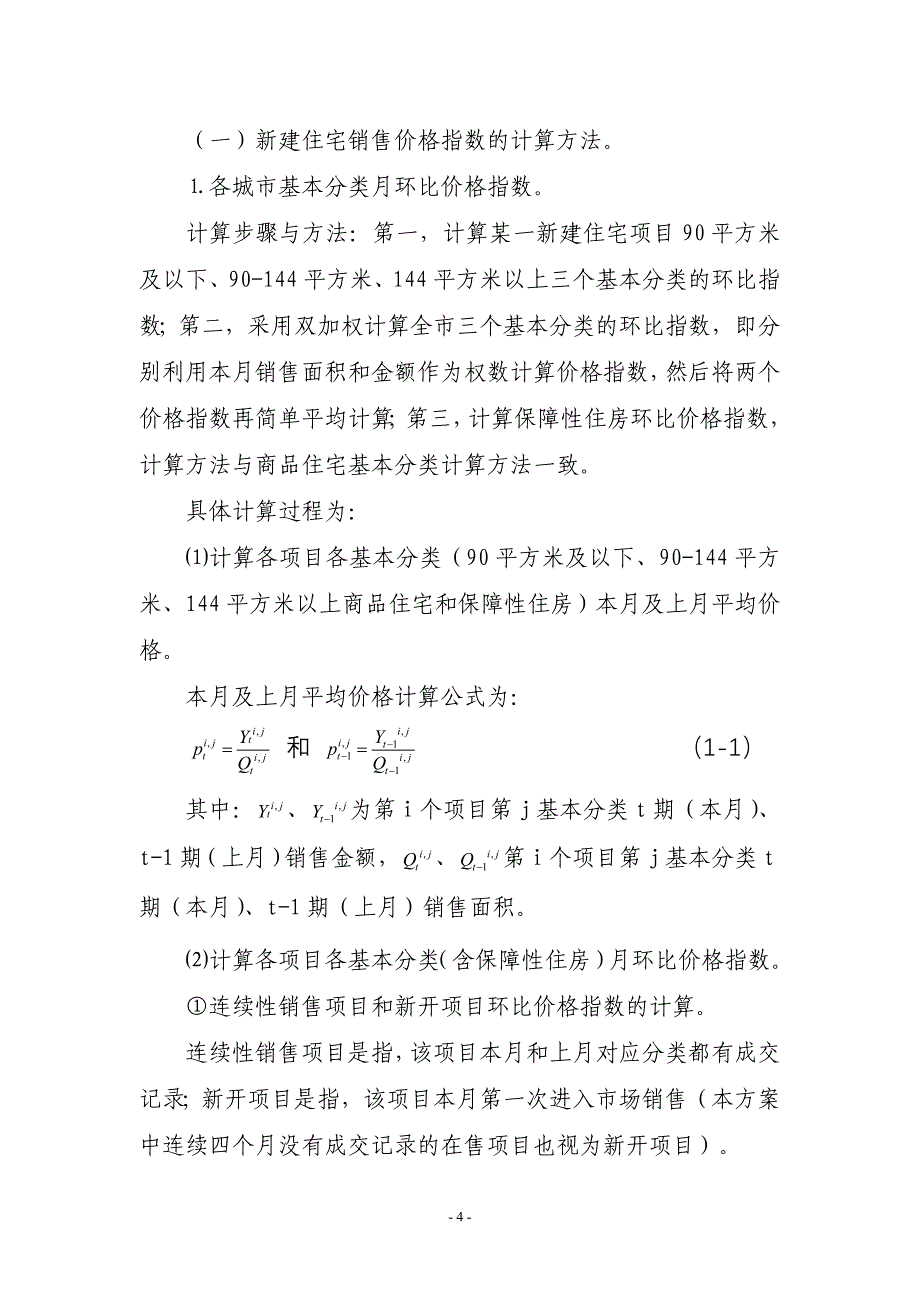 （一）新建住宅销售价格指数的计算方法。
⒈各城市基本分类月环比价格指数。
计算步骤与方法：第一，计算某一新建住宅项目 90 平方米
及以下、90-144 平方米、144 平方米以上三个基本分类的环比指
数；第二，采用双加权计算全市三个基本分类的环比指数，即分
别利用本月销售面积和金额作为权数计算价格指数，然后将两个
价格指数再简单平均计算；第三，计算保障性住房环比价格指数，
计算方法与商品住宅基本分类计算方法一致。
具体计算过程为：
⑴计算各项目各基本分类（90 平方米及以下、90-144 平方
米、144 平方米以上商品住宅和保障性住房）本月及上月平均价
格。
本月及上月平均价格计算公式为：
$p_t^{i,j}=\frac{Y_t^{i,j}}{Q_t^{i,j}}$ 和 $p_{t-1}^{i,j}=\frac{Y_{t-1}^{i,j}}{Q_{t-1}^{i,j}}$ （1-1）
其中：$Y_t^{i,j}$、$Y_{t-1}^{i,j}$为第 i 个项目第 j 基本分类 t 期（本月）、
t-1 期（上月）销售金额，$Q_t^{i,j}$、$Q_{t-1}^{i,j}$第 i 个项目第 j 基本分类 t
期（本月）、t-1 期（上月）销售面积。
⑵计算各项目各基本分类（含保障性住房）月环比价格指数。
①连续性销售项目和新开项目环比价格指数的计算。
连续性销售项目是指，该项目本月和上月对应分类都有成交
记录；新开项目是指，该项目本月第一次进入市场销售（本方案
中连续四个月没有成交记录的在售项目也视为新开项目）。
- 4 -